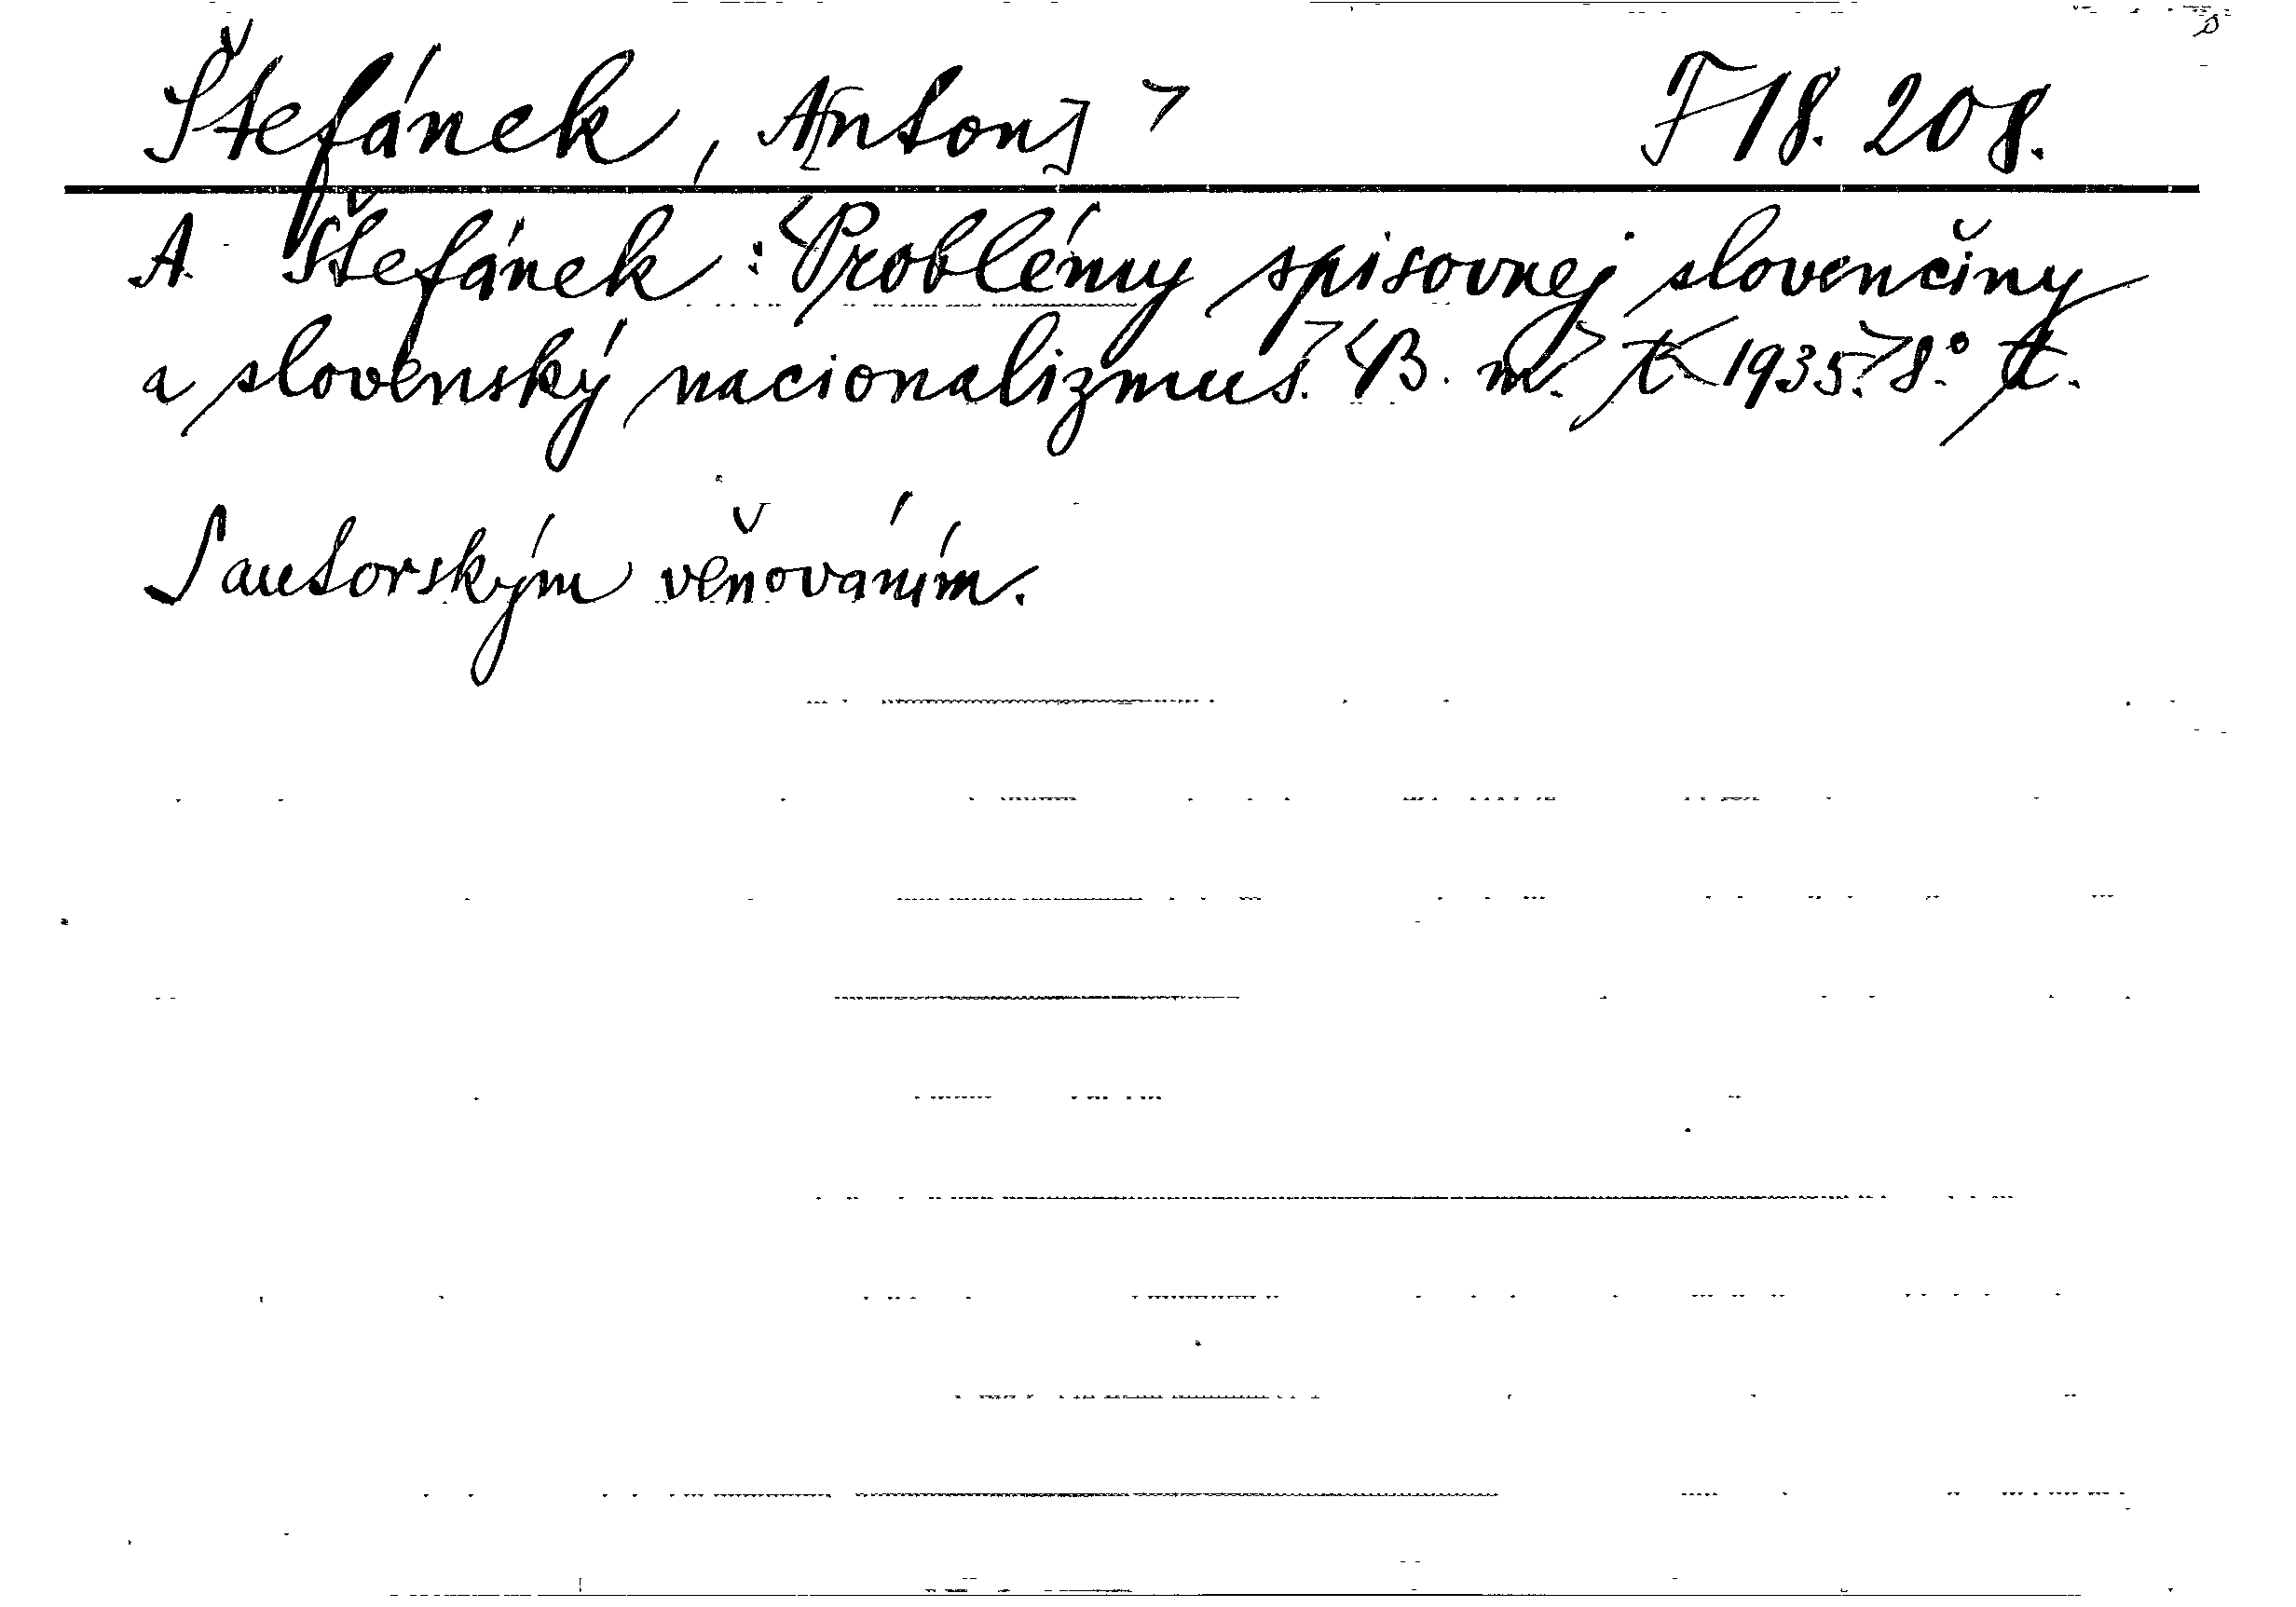 Štefánek, A[nton]>
F 18.208.
A Štefánek: <Problémy spisovnej slovenčiny
a slovenský nacionalizmus.> <B. m.> t. <1935.> 8.° tt.
S autorským věnováním.